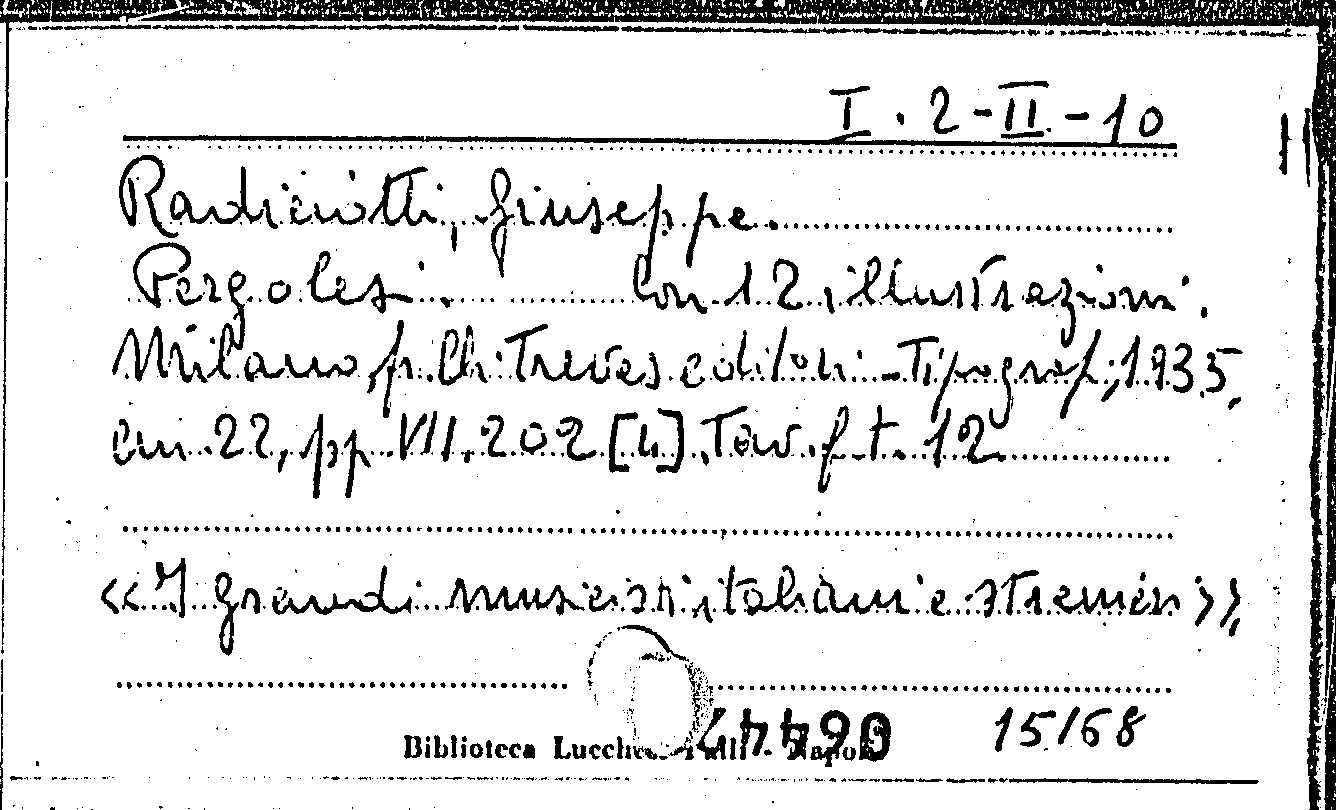 I. 2-II-10
Radiciotti, Giuseppe.
Pergolesi. Con 12 illustrazioni.
Milano, f.lli Treves editori-Tipograf., 1935,
cm. 22, pp. VII. 202 [4]. Tav. f. t. 12.
«I grandi musicisti italiani e stranieri»,
15/68
Biblioteca Lucchesi Palli - Napoli